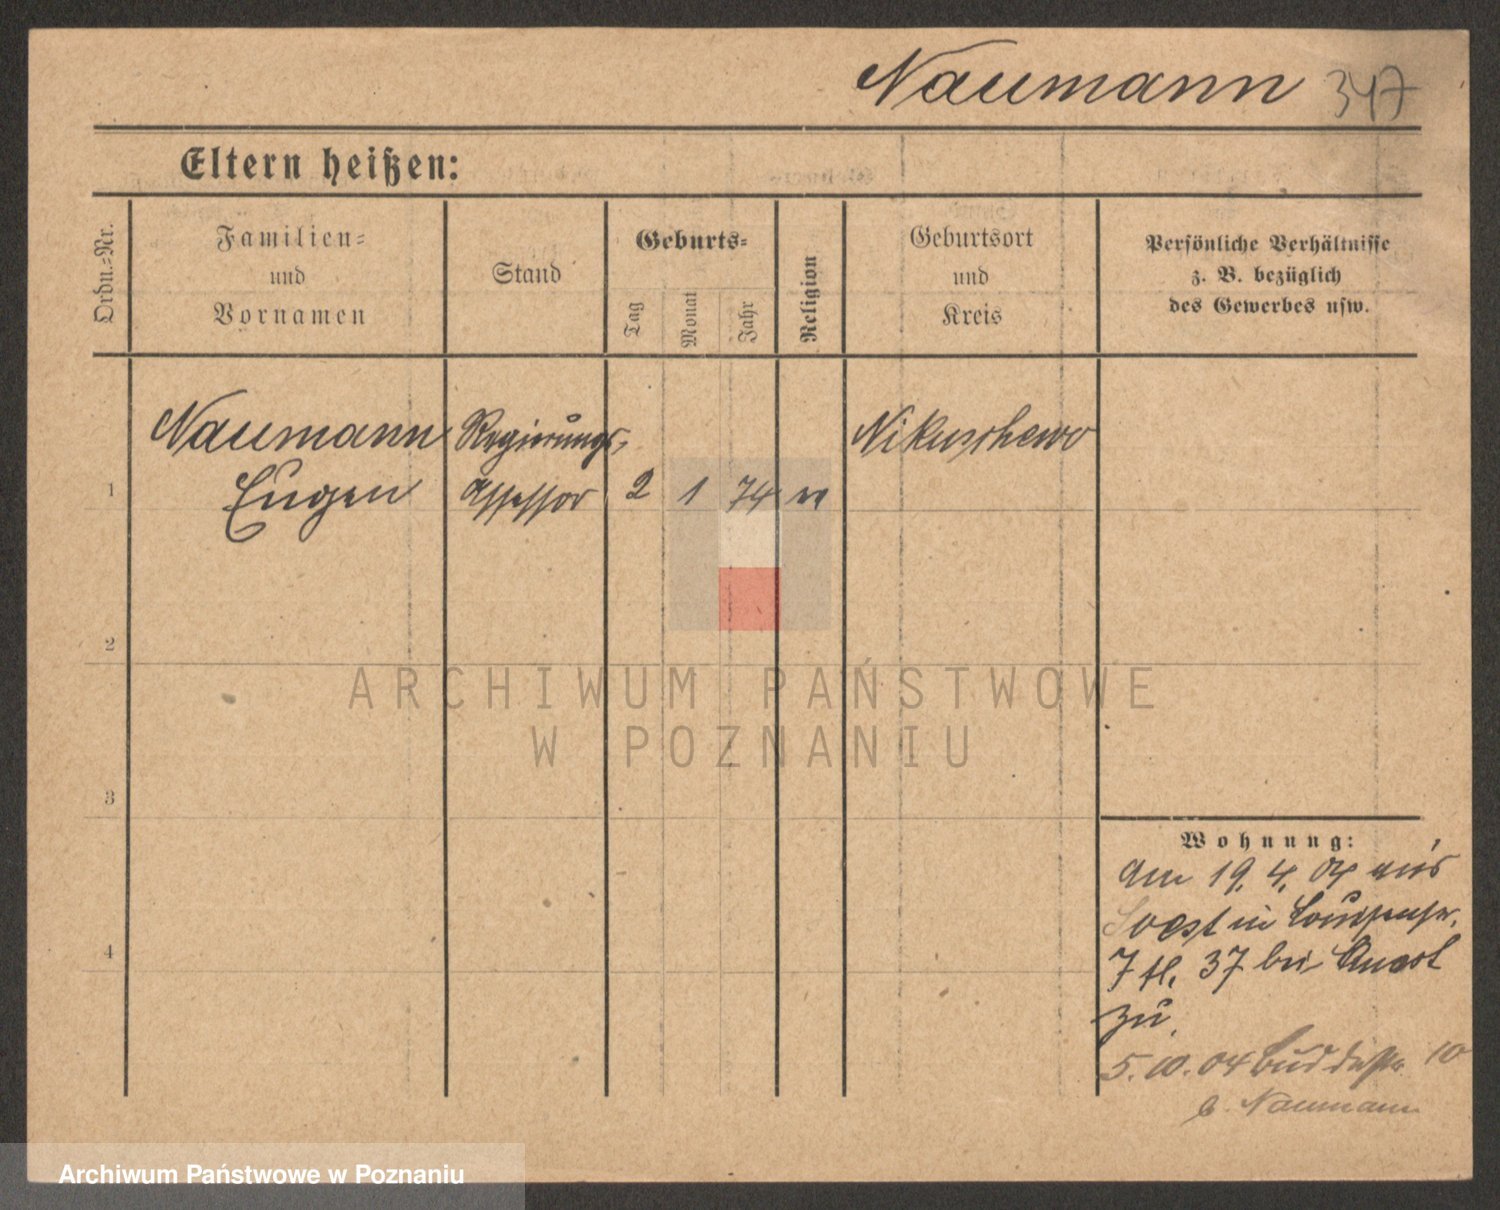 Naumann 347
Eltern heißen:
Ordn.=Nr.
Familien=
und
Vornamen
Stand
Geburts=
Tag
Monat
Jahr
Religion
Geburtsort
und
Kreis
Persönliche Verhältnisse
z. B. bezüglich
des Gewerbes usw.
Naumann Regierungs=
1 Eugen Assessor 2 1 74
2
3
4
Wohnung:
Am 19.4.04 aus
Soest in
7 II. 37 bei
zu.
5.10.04 10
b. Naumann
ARCHIWUM PAŃSTWOWE
W POZNANIU
Archiwum Państwowe w Poznaniu